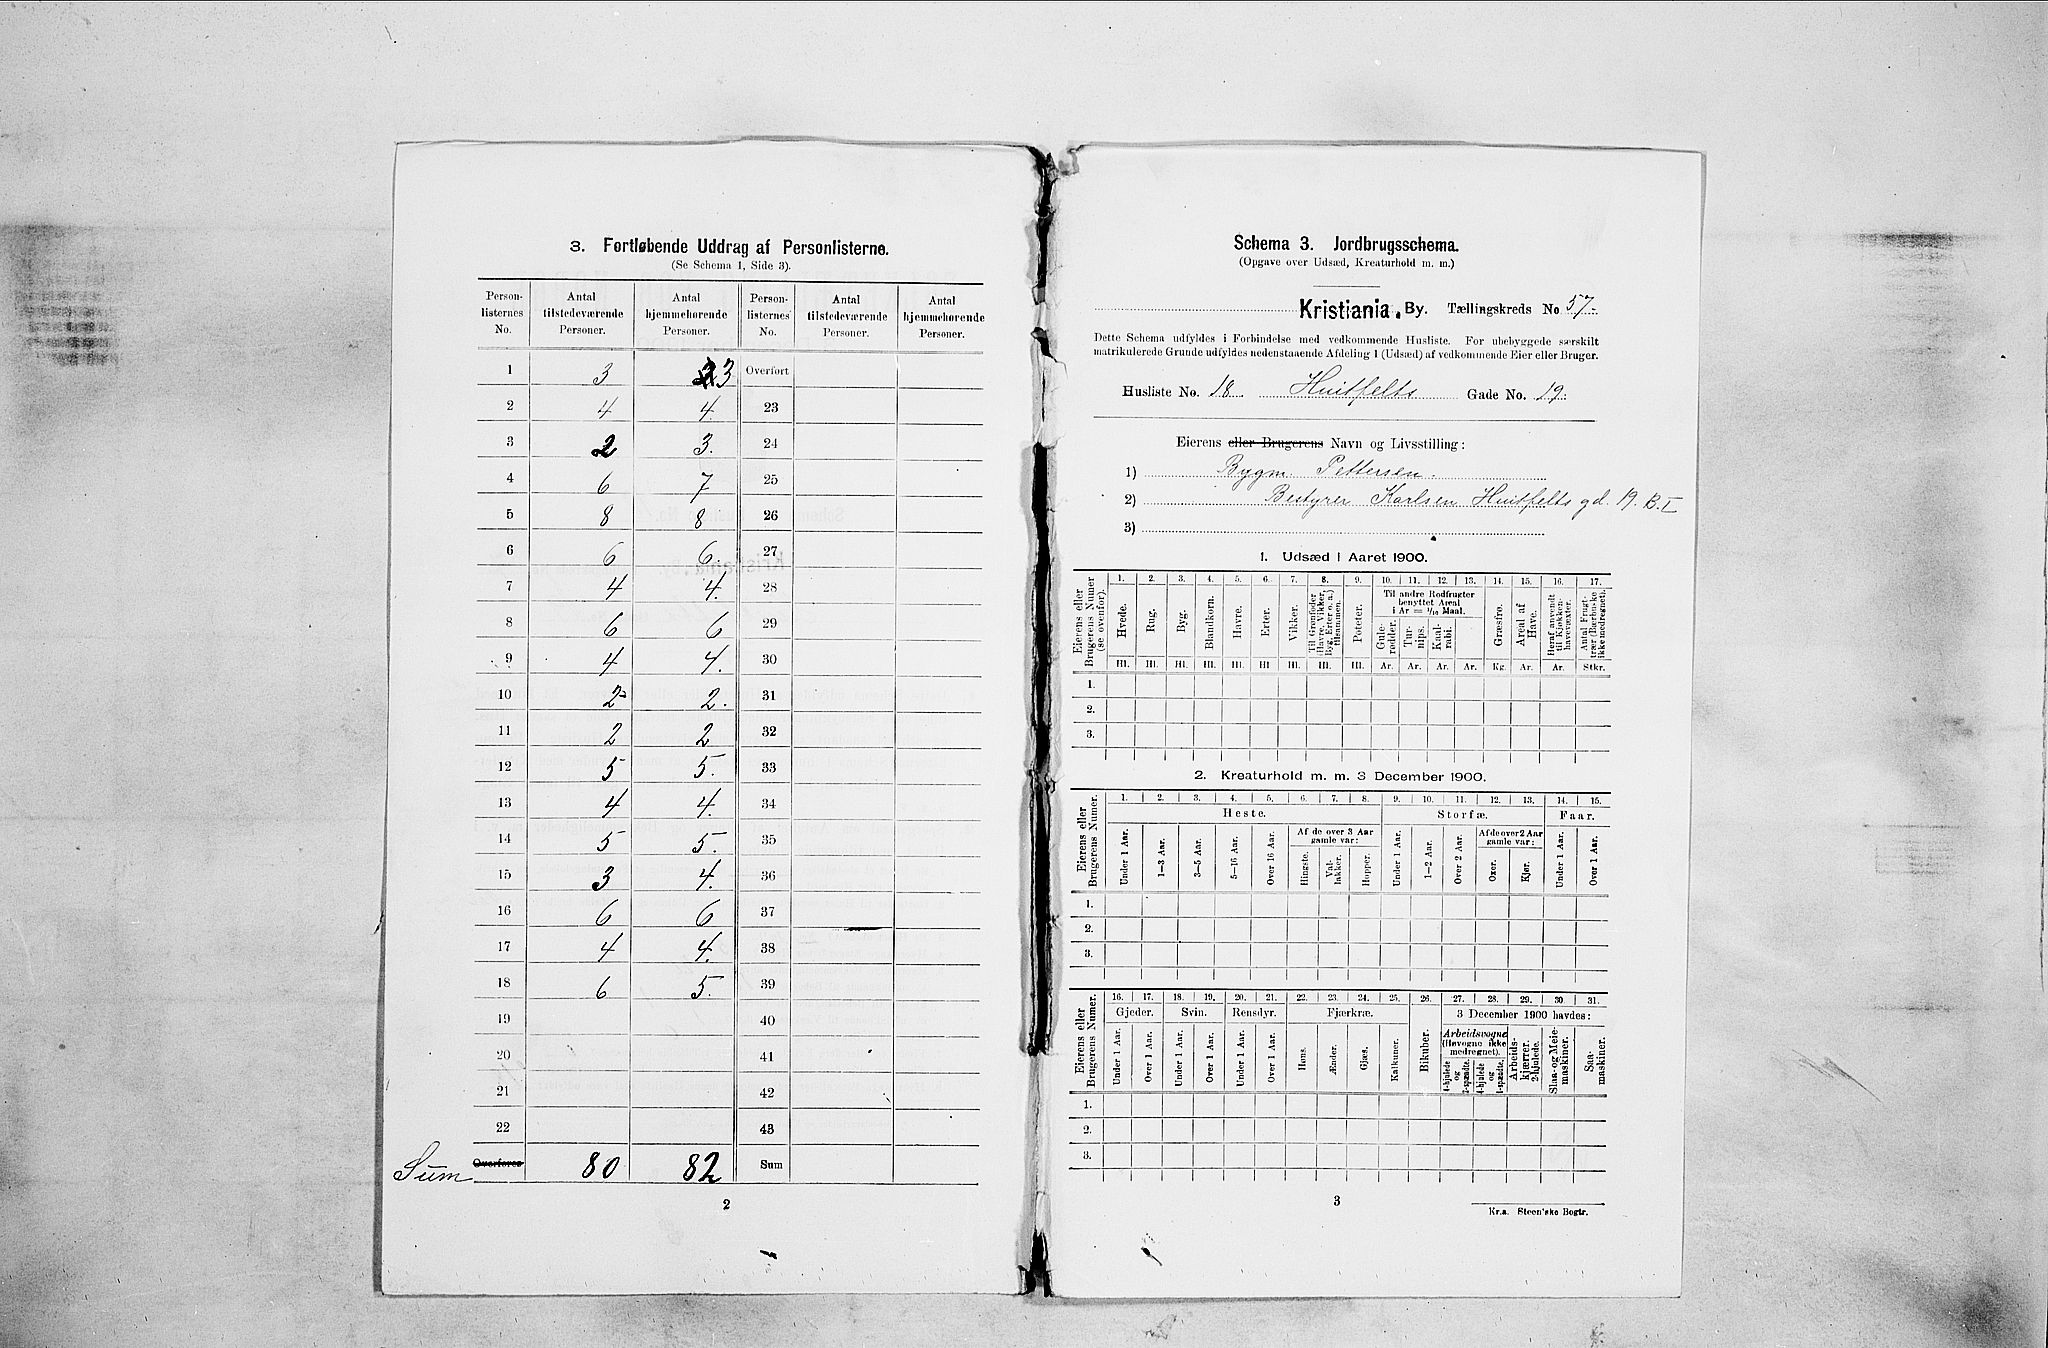 3. Fortløbende Uddrag af Personlisterne.
(Se Schema 1, Side 3).
Person-listernes No. | Antal tilstedeværende Personer. | Antal hjemmehørende Personer. | Person-listernes No. | Antal tilstedeværende Personer. | Antal hjemmehørende Personer.
1 3 3 Overført
2 4 4. 23
3 2 3. 24
4 6 7 25
5 8 8 26
6 6 6. 27
7 4 4. 28
8 6 6 29
9 4 4. 30
10 2 2. 31
11 2 2 32
12 5 5. 33
13 4 4. 34
14 5 5. 35
15 3 4. 36
16 6 6 37
17 4 4. 38
18 6 5. 39
19 40
20 41
21 42
22 43
Sum Overføres 80 82 Sum
2
Schema 3. Jordbrugsschema.
(Opgave over Udsæd, Kreaturhold m. m.)
Kristiania. By. Tællingskreds No 57.
Dette Schema udfyldes i Forbindelse med vedkommende Husliste. For ubebyggede særskilt
matrikulerede Grunde udfyldes nedenstaaende Afdeling 1 (Udsæd) af vedkommende Eier eller Bruger.
Husliste No. 18 Huitfelts Gade No. 19.
Eierens eller Brugerens Navn og Livsstilling:
1) Bygm. Pettersen.
2) Bestyrer Karlsen Huitfelts gd. 19. B. I
3)
1. Udsæd i Aaret 1900.
Eierens eller Brugerens Numer (se ovenfor).
1. 2. 3. 4. 5. 6. 7. 8. 9. 10. 11. 12. 13. 14. 15. 16. 17.
Hvede. Rug. Byg. Blandkorn. Havre. Erter. Vikker. Til Grønfoder (Havre, Vikker, Byg, Erter o. a.) tilsammen. Poteter.
Til andre Rodfrugter benyttet Areal i Ar = 1/10 Maal.
Gule-rødder. Tur-nips. Kaal-rabi.
Græsfrø. Areal af Have. Heraf anvendt til Kjøkken-havevæxter. Antal Frugt-trær (Bærbuske ikke medregnet).
Hl. Hl. Hl. Hl. Hl. Hl Hl. Hl. Hl. Ar. Ar. Ar. Ar. Kg. Ar. Ar. Stkr.
1.
2.
3.
2. Kreaturhold m. m. 3 December 1900.
Eierens eller Brugerens Numer.
1. 2. 3. 4. 5. 6. 7. 8. 9. 10. 11. 12. 13. 14. 15.
Heste. Storfæ. Faar.
Under 1 Aar. 1–3 Aar. 3–5 Aar. 5–16 Aar. Over 16 Aar.
Af de over 3 Aar gamle var:
Hingste. Val-lakker. Hopper.
Under 1 Aar. 1–2 Aar. Over 2 Aar.
Af de over 2 Aar gamle var:
Oxer. Kjør.
Under 1 Aar. Over 1 Aar.
1.
2.
3.
Eierens eller Brugerens Numer.
16. 17. 18. 19. 20. 21. 22. 23. 24. 25. 26. 27. 28. 29. 30. 31.
Gjeder. Svin. Rensdyr. Fjærkræ. Bikuber. 3 December 1900 havdes:
Under 1 Aar. Over 1 Aar. Under 1 Aar. Over 1 Aar. Under 1 Aar. Over 1 Aar. Høns. Ænder. Gjæs. Kalkuner.
Arbeidsvogne (Høvogne ikke medregnet).
4-hjulede og 2-spændte. 4-hjulede og 1-spændte.
Arbeids-kjærrer. 2-hjulede. Slaa- og Meie-maskiner. Saa-maskiner.
1.
2.
3.
3
Kr.a. Steen'ske Bogtr.